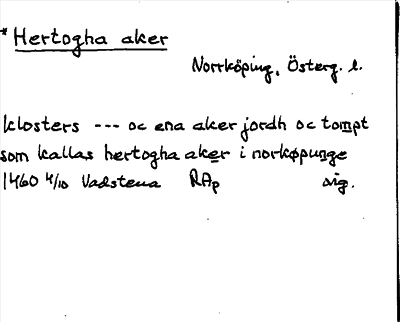 * Hertogha aker
Norrköping, Österg. l.
klosters --- oc ena aker jordh oc tompt
som kallas hertogha aker i norkøpunge
1460 4/10 Vadstena RAp sig.